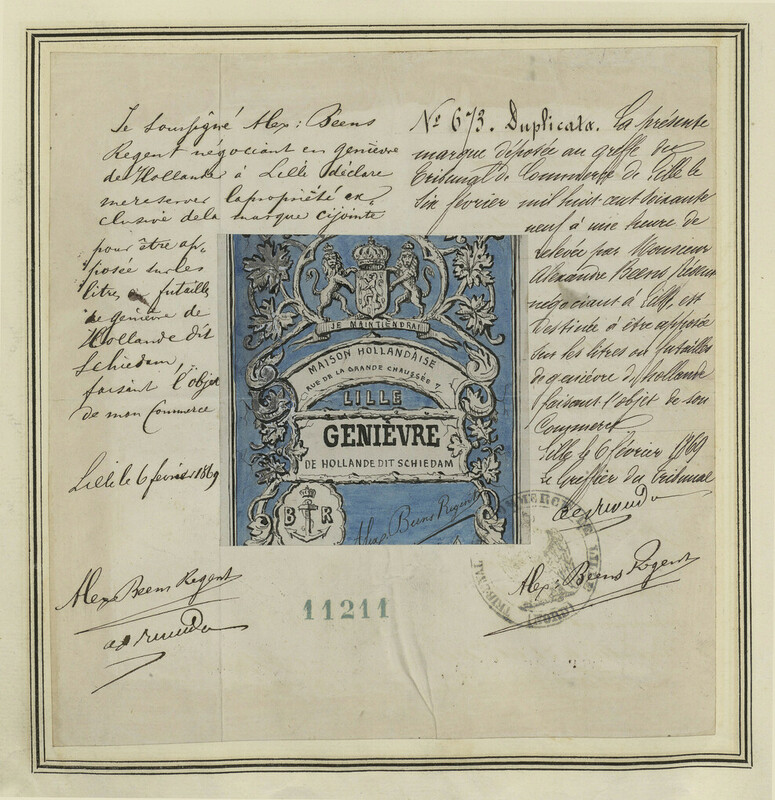 Je soussigné Alex: Beens
Regent négociant en genièvre
de Hollande à Lille déclare
me reserver la propriété ex-
clusive de la marque cijointe
pour être ap-
posée sur les
litres ou futailles
de genièvre de
Hollande dit
Schiedam,
faisant l'objet
de mon Commerce
Lille le 6 février 1869
Alex Beens Regent
No 673. Duplicata. La présente
marque déposée au greffe du
Tribunal de Commerce de Lille le
six février mil huit cent soixante
neuf à une heure de
relevée par Monsieur
Alexandre Beens Régent
négociant à Lille, est
destinée à être apposée
sur les litres ou futailles
de genièvre de hollande
faisant l'objet de son
Commerce
Lille le 6 février 1869
Le Greffier du Tribunal
Alex: Beens Regent
JE MAINTIENDRAI
MAISON HOLLANDAISE
RUE DE LA GRANDE CHAUSSÉE 7
LILLE
GENIÈVRE
DE HOLLANDE DIT SCHIEDAM
B R
Alex Beens Regent
TRIBUNAL COMMERCE DE LILLE
(NORD)
11211